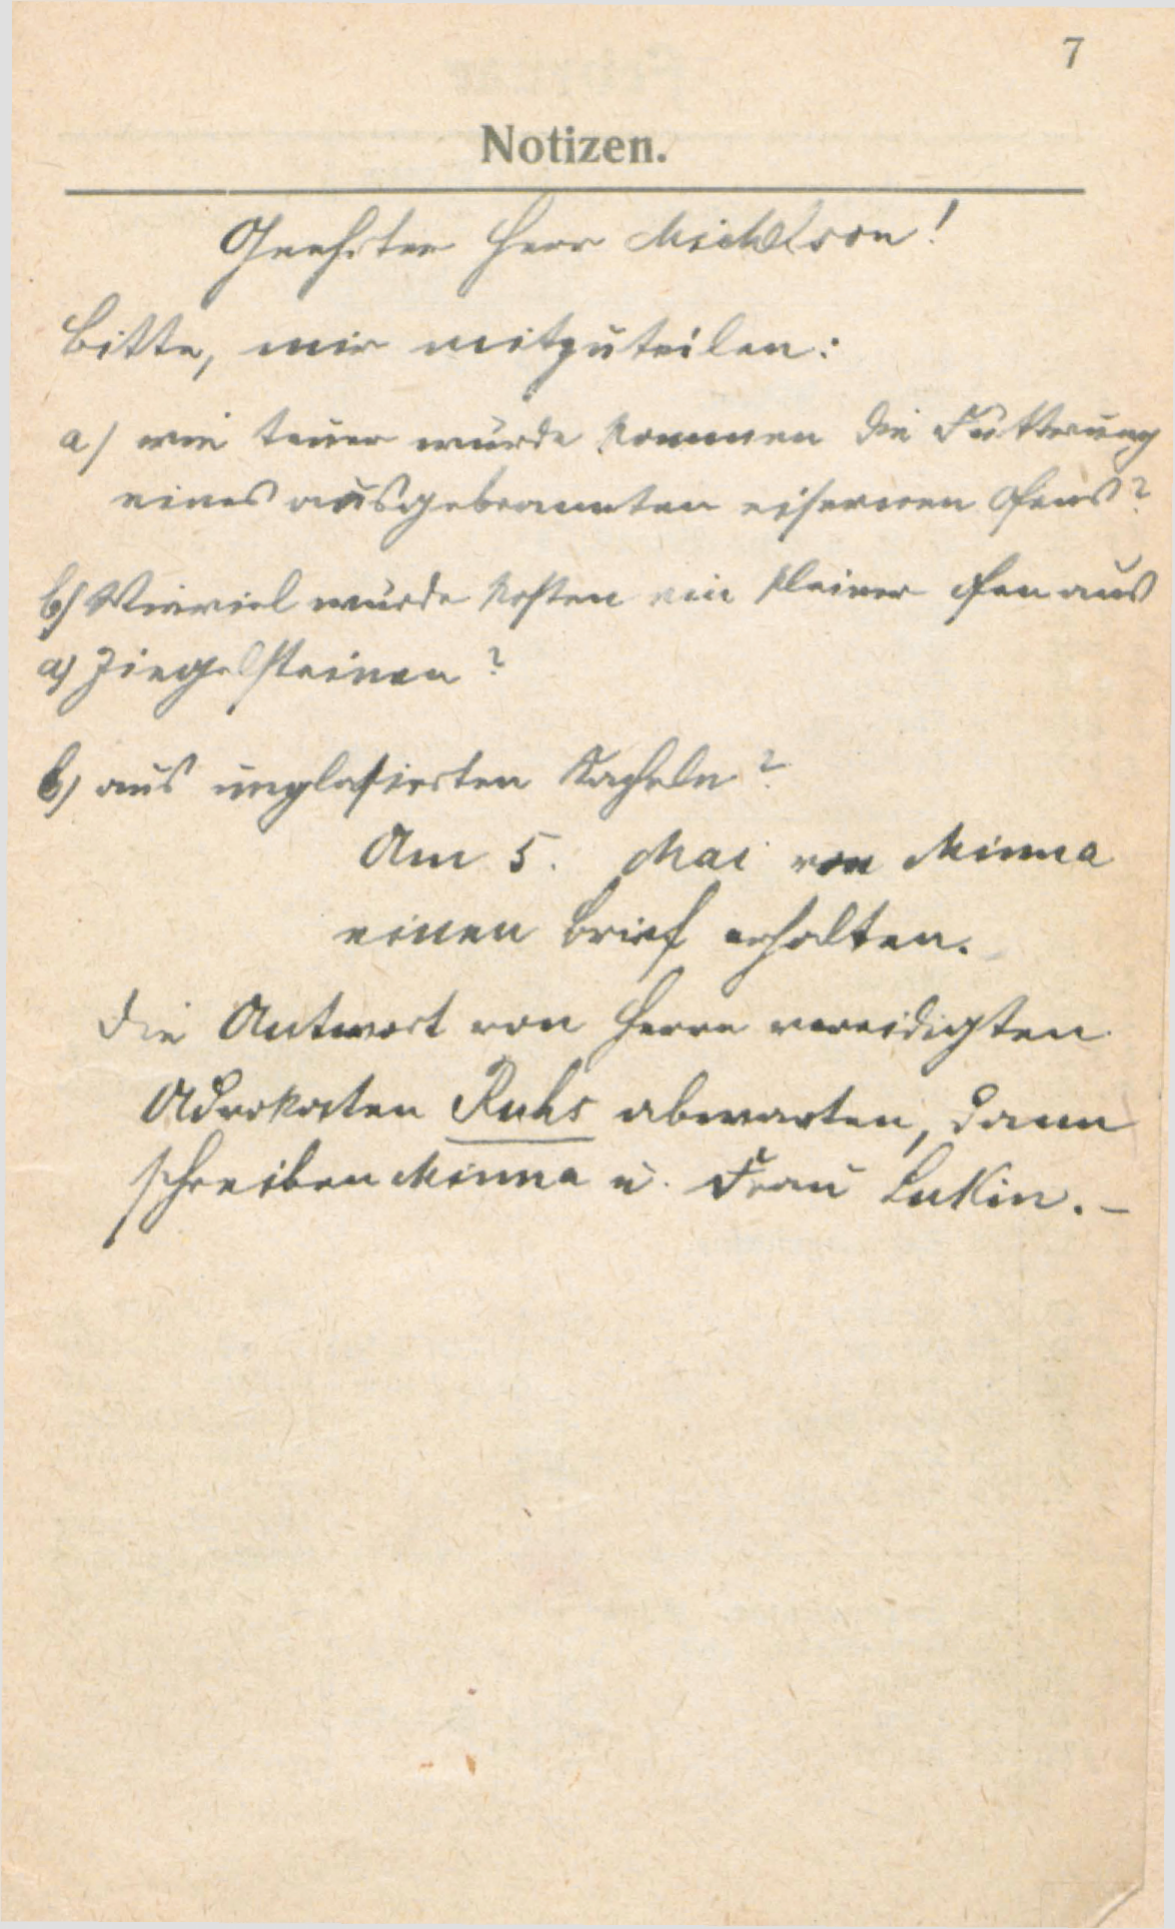 7
Notizen.
Geehrter Herr Michelson!
Bitte, mir mitzuteilen:
a) wie teuer würde kommen die Futterung
eines ausgebrannten eisernen Ofens?
b) Wieviel würde kosten ein kleiner Ofen aus
a) Ziegelsteinen?
b) aus unglasierten Kacheln?
Am 5. Mai von Minna
einen Brief erhalten.
Die Antwort von Herrn vereidigten
Advokaten Ruhs abwarten, dann
schreiben Minna u. Frau Lukin. –